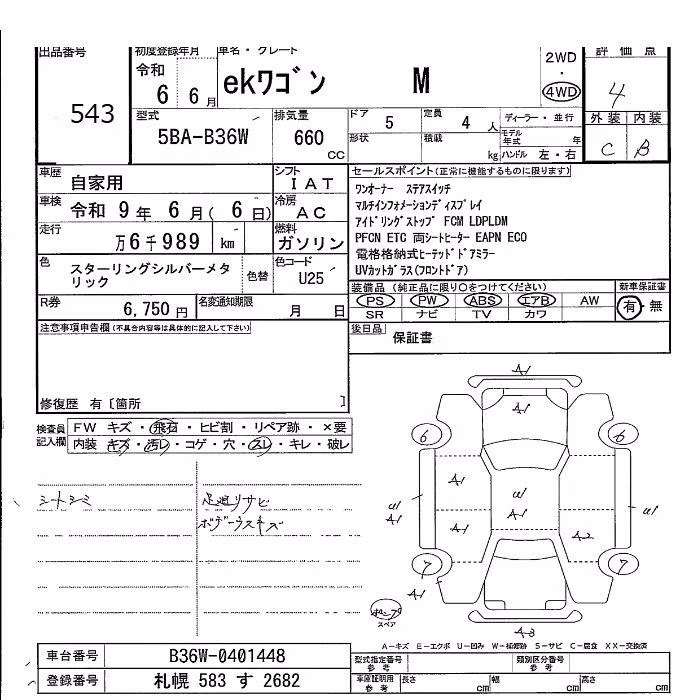 出品番号
543
初度登録年月
令和
6 6月
車名・グレード
ekワゴン M
2WD
・
4WD
評価点
4
外装 内装
C B
型式
5BA-B36W
排気量
660
CC
ドア
5
定員
4 人
形状
積載
kg
ディーラー・並行
モデル年式 年
ハンドル 左・右
車歴
自家用
シフト
I AT
車検
令和 9年 6月(6日)
冷房
AC
走行
万6千989 km
燃料
ガソリン
色
スターリングシルバーメタ
リック
色替
色コード
U25
R券
6,750円
名変通知期限
月 日
セールスポイント(正常に機能するものに限ります)
ワンオーナー ステアスイッチ
マルチインフォメーションディスプレイ
アイドリングストップ FCM LDPLDM
PFCN ETC 両シートヒーター EAPN ECO
電格格納式ヒーテッドドアミラー
UVカットガラス(フロントドア)
装備品(純正品に限り○をつけてください)
新車保証書
PS PW ABS エアB AW
SR ナビ TV カワ
有・無
後日品
保証書
注意事項申告欄(不具合内容等は具体的に記入して下さい)
修復歴 有〔箇所 〕
検査員
記入欄
FW キズ・飛石・ヒビ割・リペア跡・×要
内装 キズ・汚レ・コゲ・穴・スレ・キレ・破レ
シートシミ
足廻リサビ
ボデーウスキズ
A1
A1
6
6
A1
U1
A1
U1
A1
U1
A1
A2
7
7
A1
A3
スペア
A-キズ E-エクボ U-凹み W-補修跡 S-サビ C-腐食 XX-交換済
車台番号
B36W-0401448
登録番号
札幌 583 す 2682
型式指定番号
参考
類別区分番号
参考
車庫証明用
参考
長さ cm
幅 cm
高さ cm